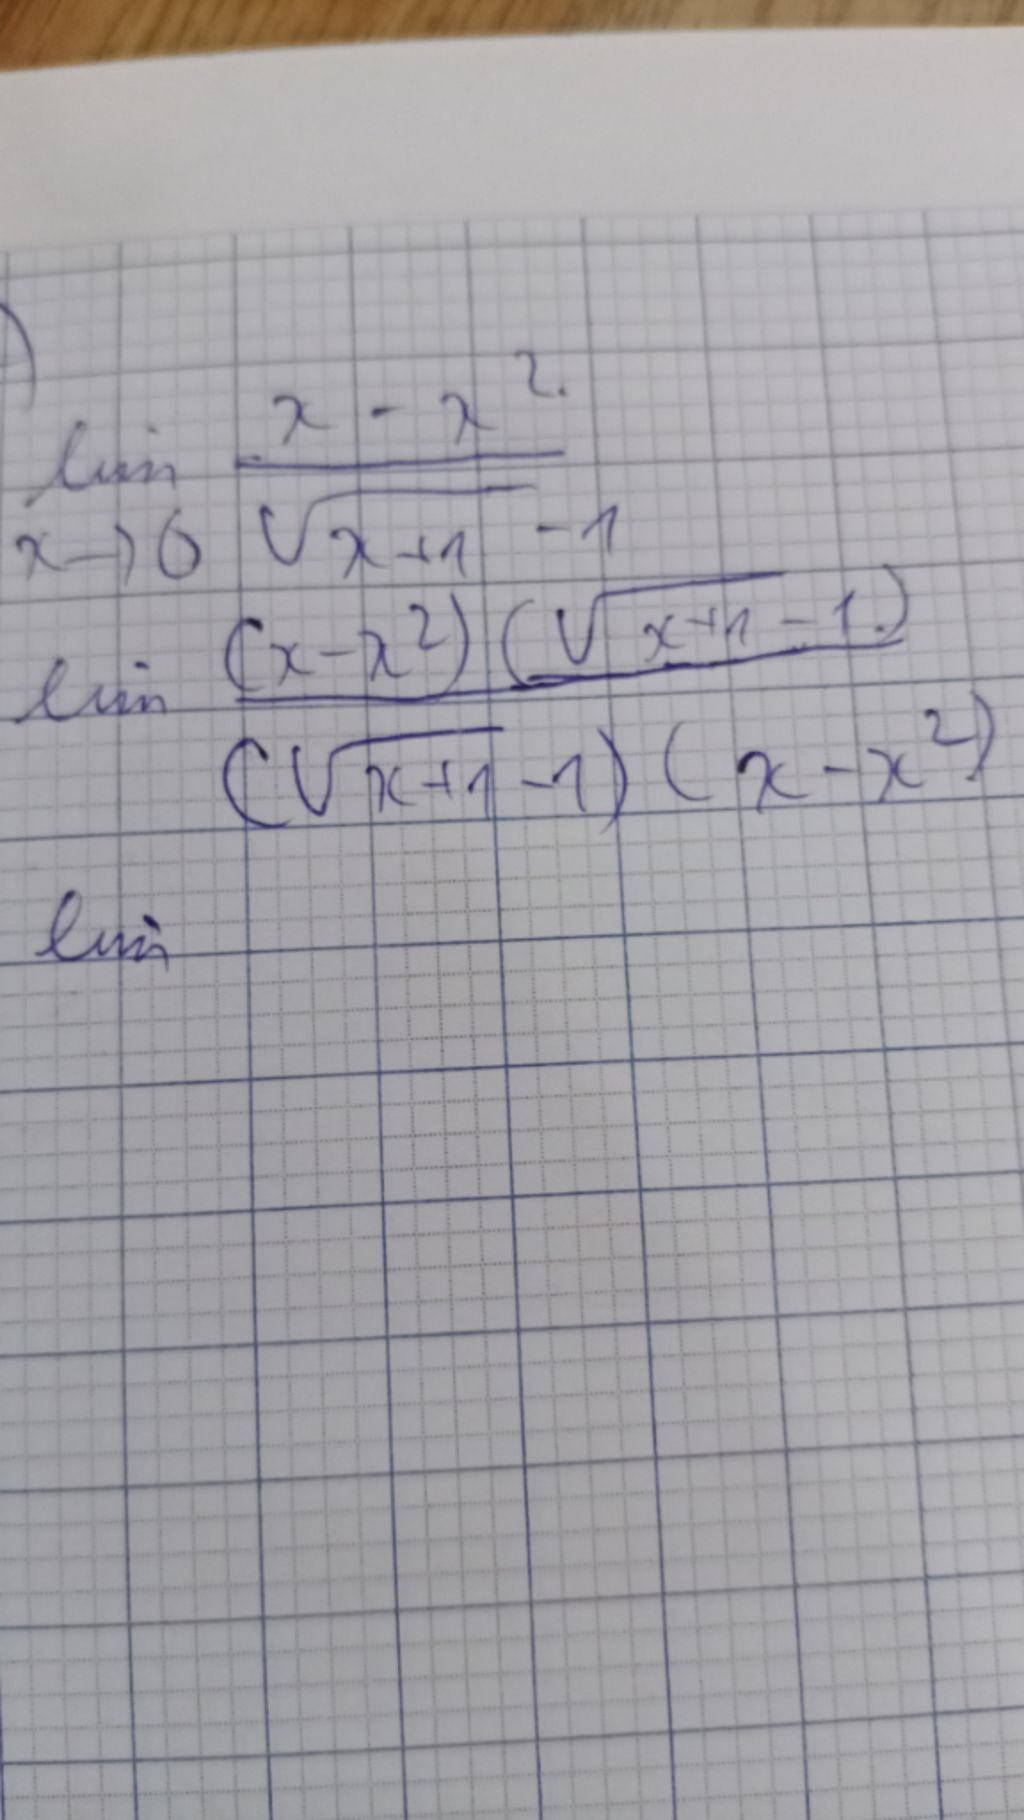 )
lim x - x².
x→0 √x+1 - 1
lim (x - x²) (√x+1 - 1.)
(√x+1 - 1) (x - x²)
lim